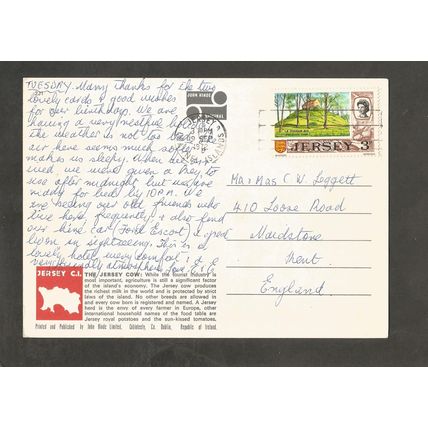 TUESDAY. Many thanks for the two
lovely cards & good wishes
for our birthdays. We are
having a very restful life
the weather is not too bad
air here seems much softer
makes us sleepy. When we arr-
ived, we were given a key to
use after midnight but we're
ready for bed by 10 P.M. We
are seeing our old friends who
live here, frequently, & also find
our hire car (Ford Escort) a great
boon in sightseeing. This is a
lovely hotel, very comfortable &
very friendly atmosphere. Love
JOHN HINDE
ORIGINAL
JERSEY
3 PM
SEP
LA HOUGUE BIE
JERSEY 3p
Mr & Mrs C W Leggett
410 Loose Road
Maidstone
Kent
England
JERSEY C.I.
THE JERSEY COW: While the tourist industry is
most important, agriculture is still a significant factor
of the island's economy. The Jersey cow produces
the richest milk in the world and is protected by strict
laws of the island. No other breeds are allowed in
and every cow born is registered and named. A Jersey
herd is the envy of every farmer in Europe, other
international household names of the food table are
Jersey royal potatoes and the sun-kissed tomatoes.
Printed and Published by John Hinde Limited, Cabinteely, Co. Dublin, Republic of Ireland.